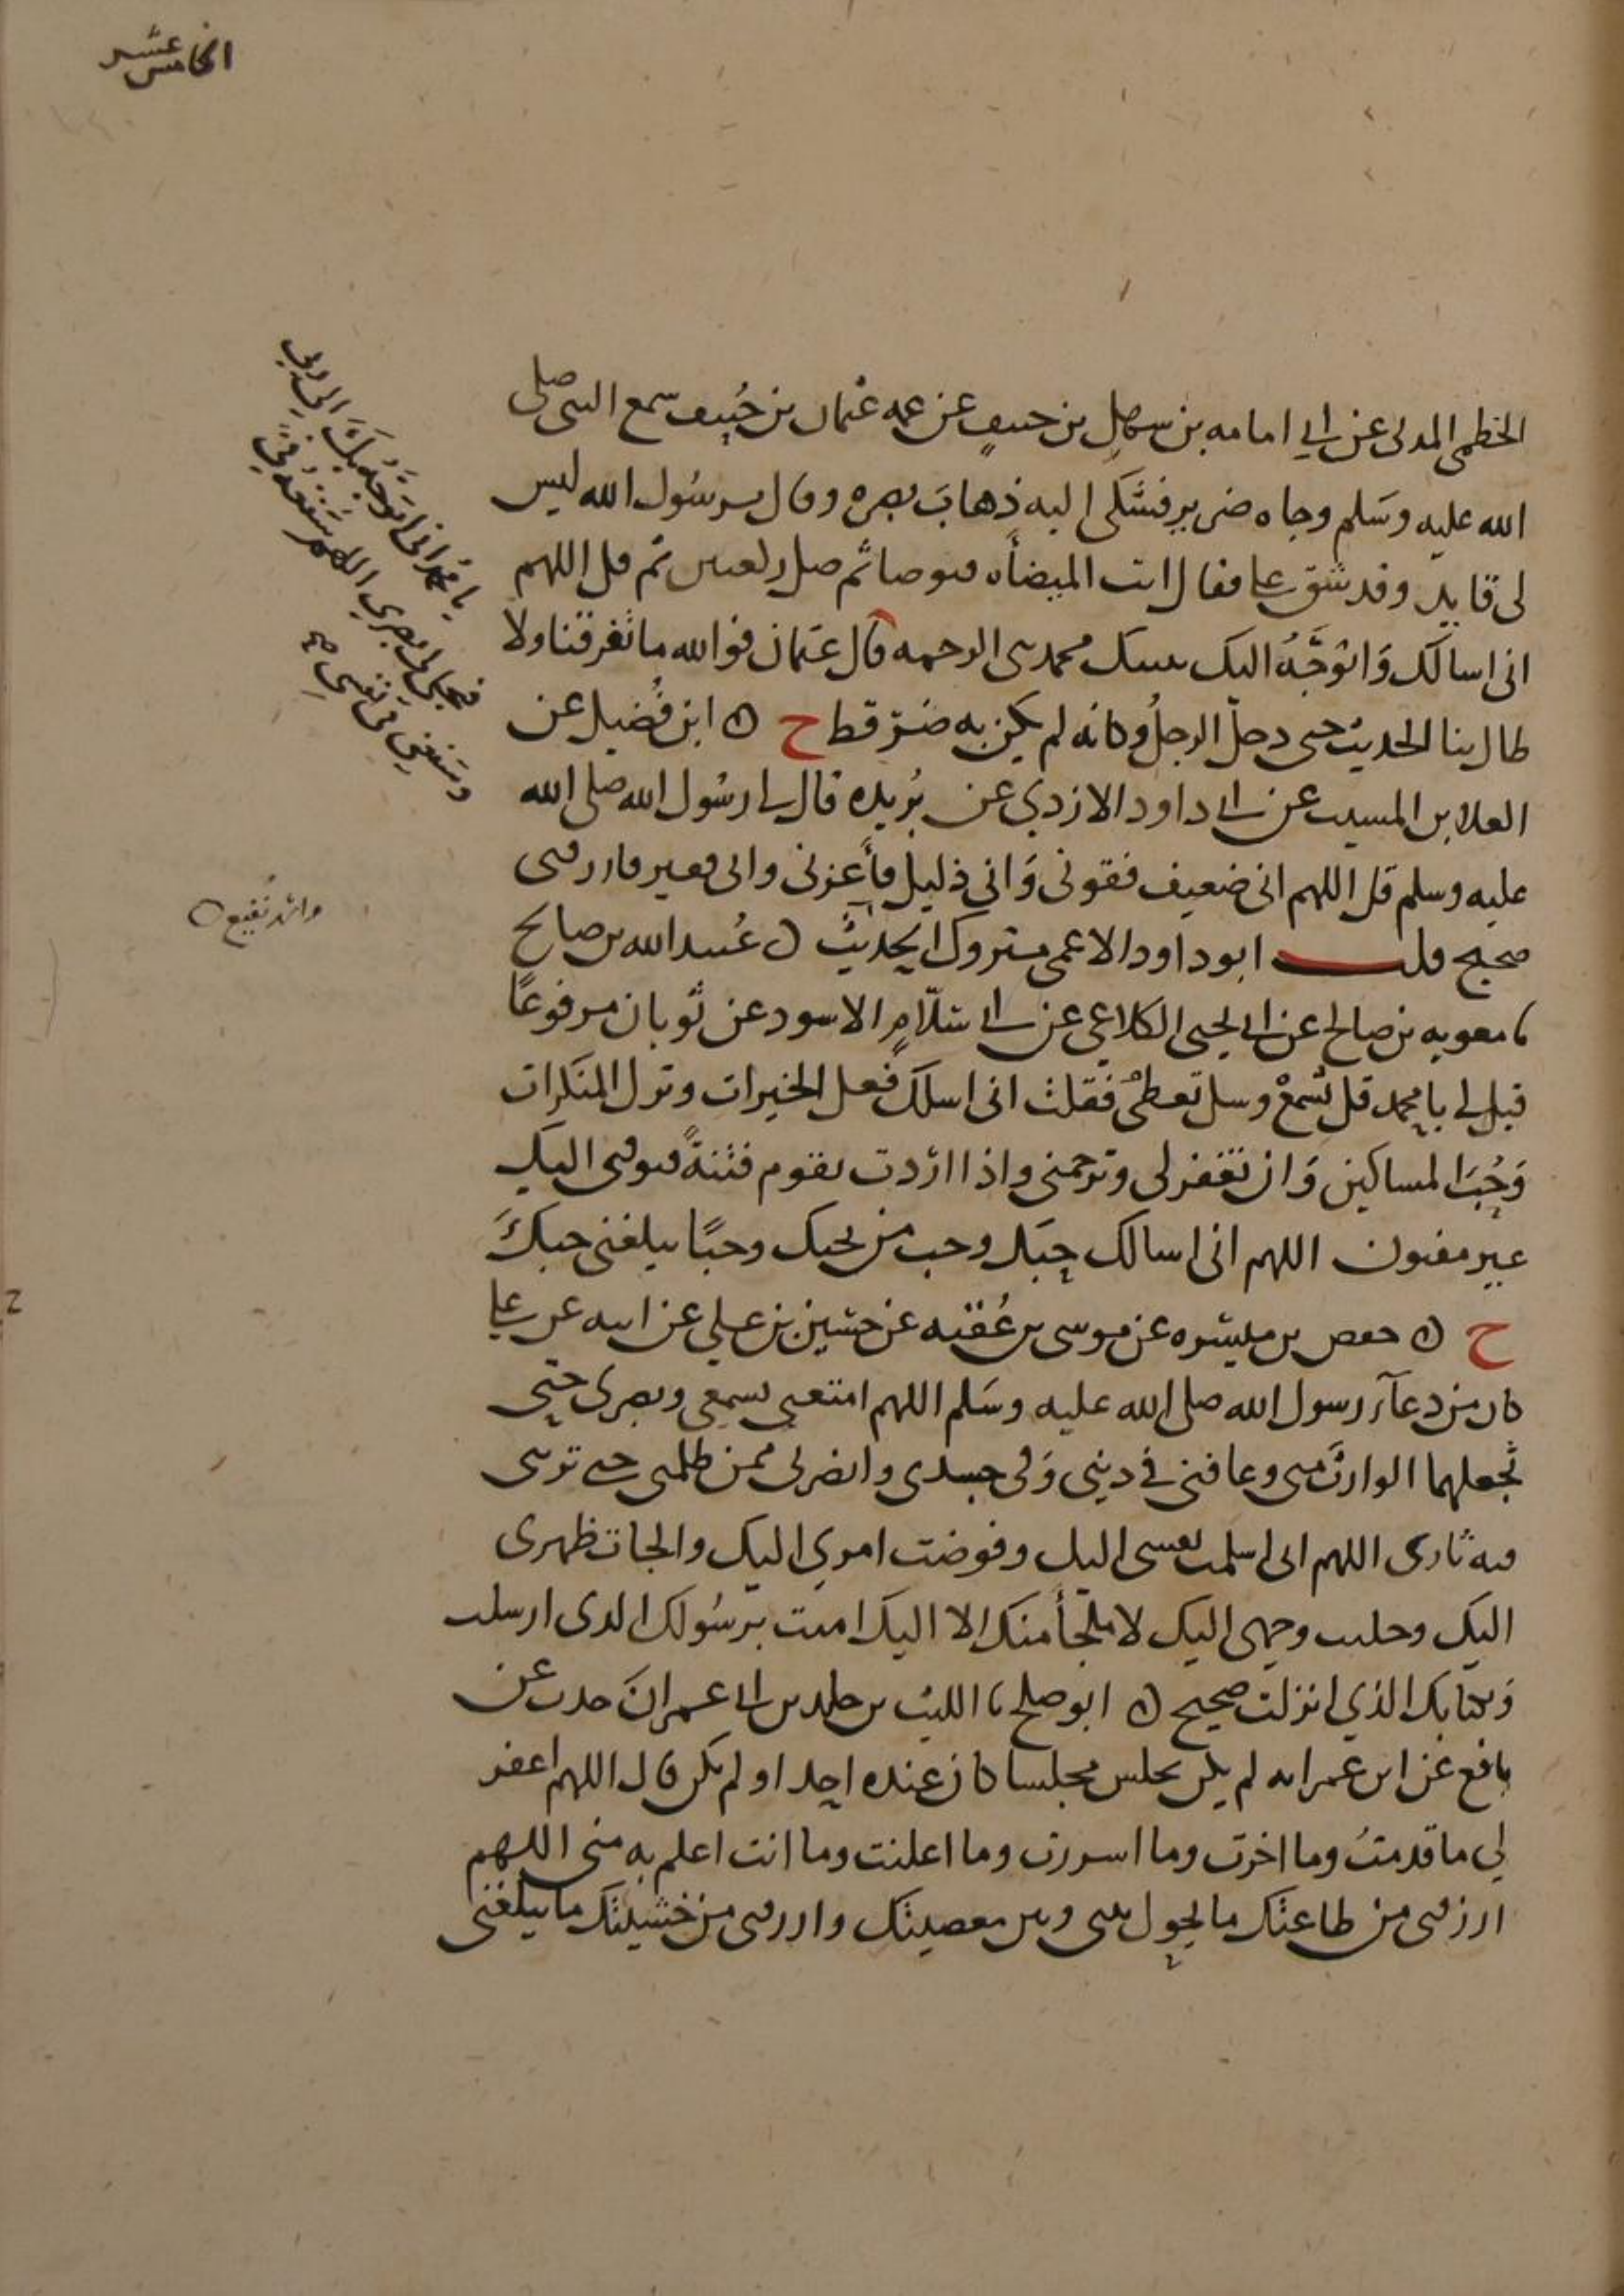 الخامس عشر
الخطمي المدني عن ابي امامه بن سهل بن حنيف عن عمه عثمان بن حُنيف سمع النبي صلى
الله عليه وسَلم وجاه ضرير فشكى اليه ذهابَ بصره وقال يرسُول الله ليس
لي قايد وقد شق علي فقال ائت الميضأه فتوضا ثم صل ركعتين ثم قل اللهم
اني اسالك وَاتوَجَّهُ اليك بنبيك محمد نبي الرحمه قال عثمان فوالله ما تفرقنا ولا
طال بنا الحديث حتى دخل الرجلُ وكانه لم يكن به ضرّ قط ح ابن فُضيل عن
العلا بن المسيب عن ابي داود الازدي عن بُريده قال لي رسُول الله صلى الله
عليه وسلم قل اللهم اني ضعيف فقوني وَاني ذليل فأعزني واني فقير فارزقني
صحيح قلت ابو داود الاعمى متروك الحديث عبد الله بن صالح
نا معويه بن صالح عن ابي يحيى الكلاعي عن ابي سَلّامٍ الاسود عن ثوبان مرفوعًا
قيل لي يا محمد قل تُسْمعْ وسل تعطَى فقلت اني اسلك فعل الخيرات وترك المنكرات
وَحُبَّ المساكين وَان تغفر لي وترحمني واذا اردت بقوم فتنةً فتوفني اليك
غير مفتون اللهم اني اسالك حبَك وحب من يحبك وحبًا يبلغني حبكَ
ح حفص بن ميسره عن موسى بن عُقبه عن حسين بن علي عن ابيه عن علي
كان من دعآء رسول الله صلى الله عليه وسَلم اللهم امتعني بسمعي وبصري حتى
تجعلهما الوارث مني وعافني في ديني وَفي جسدي وانصرني ممن ظلمني حتى تريني
فيه ثاري اللهم اني اسلمت نفسي اليك وفوضت امري اليك والجات ظهري
اليك وخليت وجهي اليك لا ملجأ منك الا اليك امنت برسُولك الذي ارسلت
وَبكتابك الذي انزلت صحيح ابو صلح نا الليث عن خلد بن ابي عمرانَ حدث عن
نافع عن ابن عمر انه لم يكن يجلس مجلسا كان عنده احد او لم يكن قال اللهم اغفر
لي ما قدمتُ وما اخرت وما اسررت وما اعلنت وما انت اعلم به مني اللهم
ارزقني من طاعتك ما يحول بيني وبين معصيتك وارزقني من خشيتك ما يبلغني
يا محمد اني اتوجّه بكَ الى ربي
فيجلي لي بصري اللهم شفعه فيّ
وشفعني في نفسي صح
نُفيع